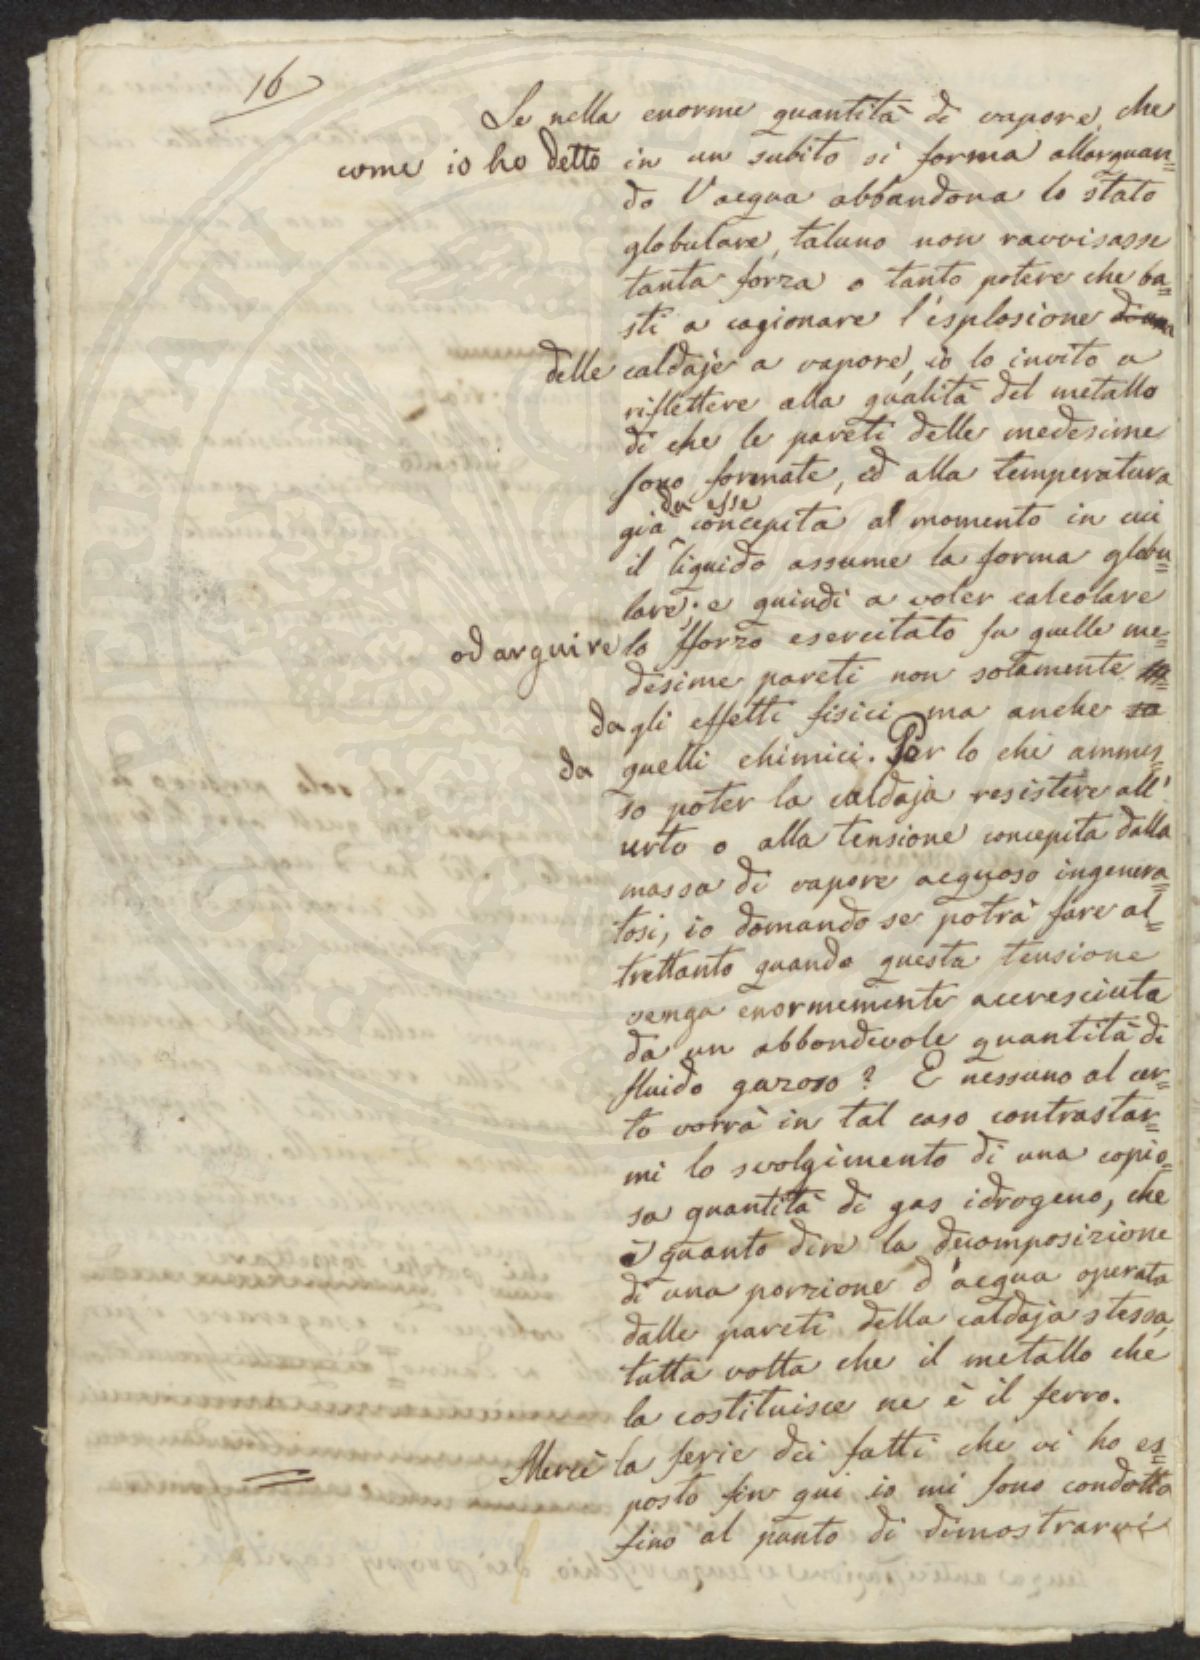 16
Se nella enorme quantità di vapore, che
come io ho detto in un subito si forma allorquan=
do l'acqua abbandona lo stato
globulare, taluno non ravvisasse
tanta forza o tanto potere che ba=
sti a cagionare l'esplosione di una
delle caldaje a vapore, io lo invito a
riflettere alla qualità del metallo
di che le pareti delle medesime
sono formate, ed alla temperatura
da esse
già concepita al momento in cui
il liquido assume la forma globu=
lare; e quindi a voler calcolare
od arguire lo sforzo esercitato su quelle me=
desime pareti non solamente
dagli effetti fisici ma anche
da quelli chimici. Per lo chè ammes=
so poter la caldaja resistere all'
urto o alla tensione concepita dalla
massa di vapore acquoso ingenera=
tosi, io domando se potrà fare al=
trettanto quando questa tensione
venga enormemente accresciuta
da un abbondevole quantità di
fluido gazoso? E nessuno al cer=
to vorrà in tal caso contrastar=
mi lo svolgimento di una copio=
sa quantità di gas idrogeno, che
è quanto dire la decomposizione
di una porzione d'acqua operata
dalle pareti della caldaja stessa,
tutta volta che il metallo che
la costituisce ne è il ferro.
Mercè la serie dei fatti che vi ho es=
posto fin qui io mi sono condotto
fino al punto di dimostrarvi